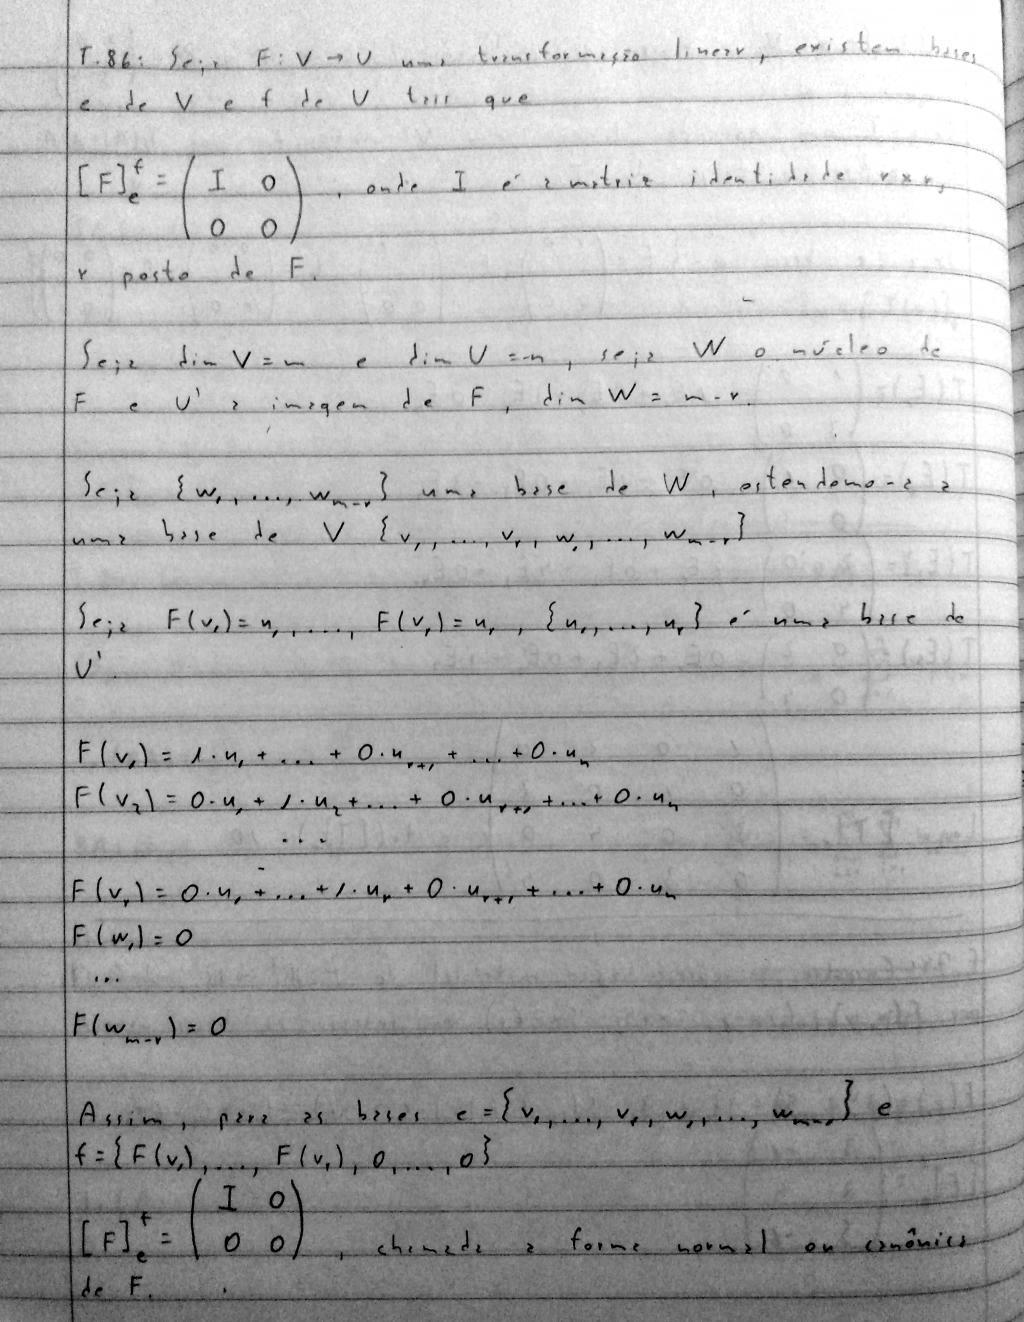 T.86: Seja F: V → U uma transformação linear, existem bases
e de V e f de U tais que
[F]ₑᶠ = ( I 0 ) , onde I é a matriz identidade r×r,
( 0 0 )
r posto de F.
Seja dim V = m e dim U = n, seja W o núcleo de
F e U' a imagem de F, dim W = m-r.
Seja {w₁, ..., wₘ₋ᵣ} uma base de W, estendamo-a a
uma base de V {v₁, ..., vᵣ, w₁, ..., wₘ₋ᵣ}
Seja F(v₁) = u₁, ..., F(vᵣ) = uᵣ, {u₁, ..., uᵣ} é uma base de
U'.
F(v₁) = 1·u₁ + ... + 0·uᵣ₊₁ + ... + 0·uₙ
F(v₂) = 0·u₁ + 1·u₂ + ... + 0·uᵣ₊₁ + ... + 0·uₙ
...
F(vᵣ) = 0·u₁ + ... + 1·uᵣ + 0·uᵣ₊₁ + ... + 0·uₙ
F(w₁) = 0
...
F(wₘ₋ᵣ) = 0
Assim, para as bases e = {v₁, ..., vᵣ, w₁, ..., wₘ₋ᵣ} e
f = {F(v₁), ..., F(vᵣ), 0, ..., 0}
[F]ₑᶠ = ( I 0 )
( 0 0 ) , chamada a forma normal ou canônica
de F.